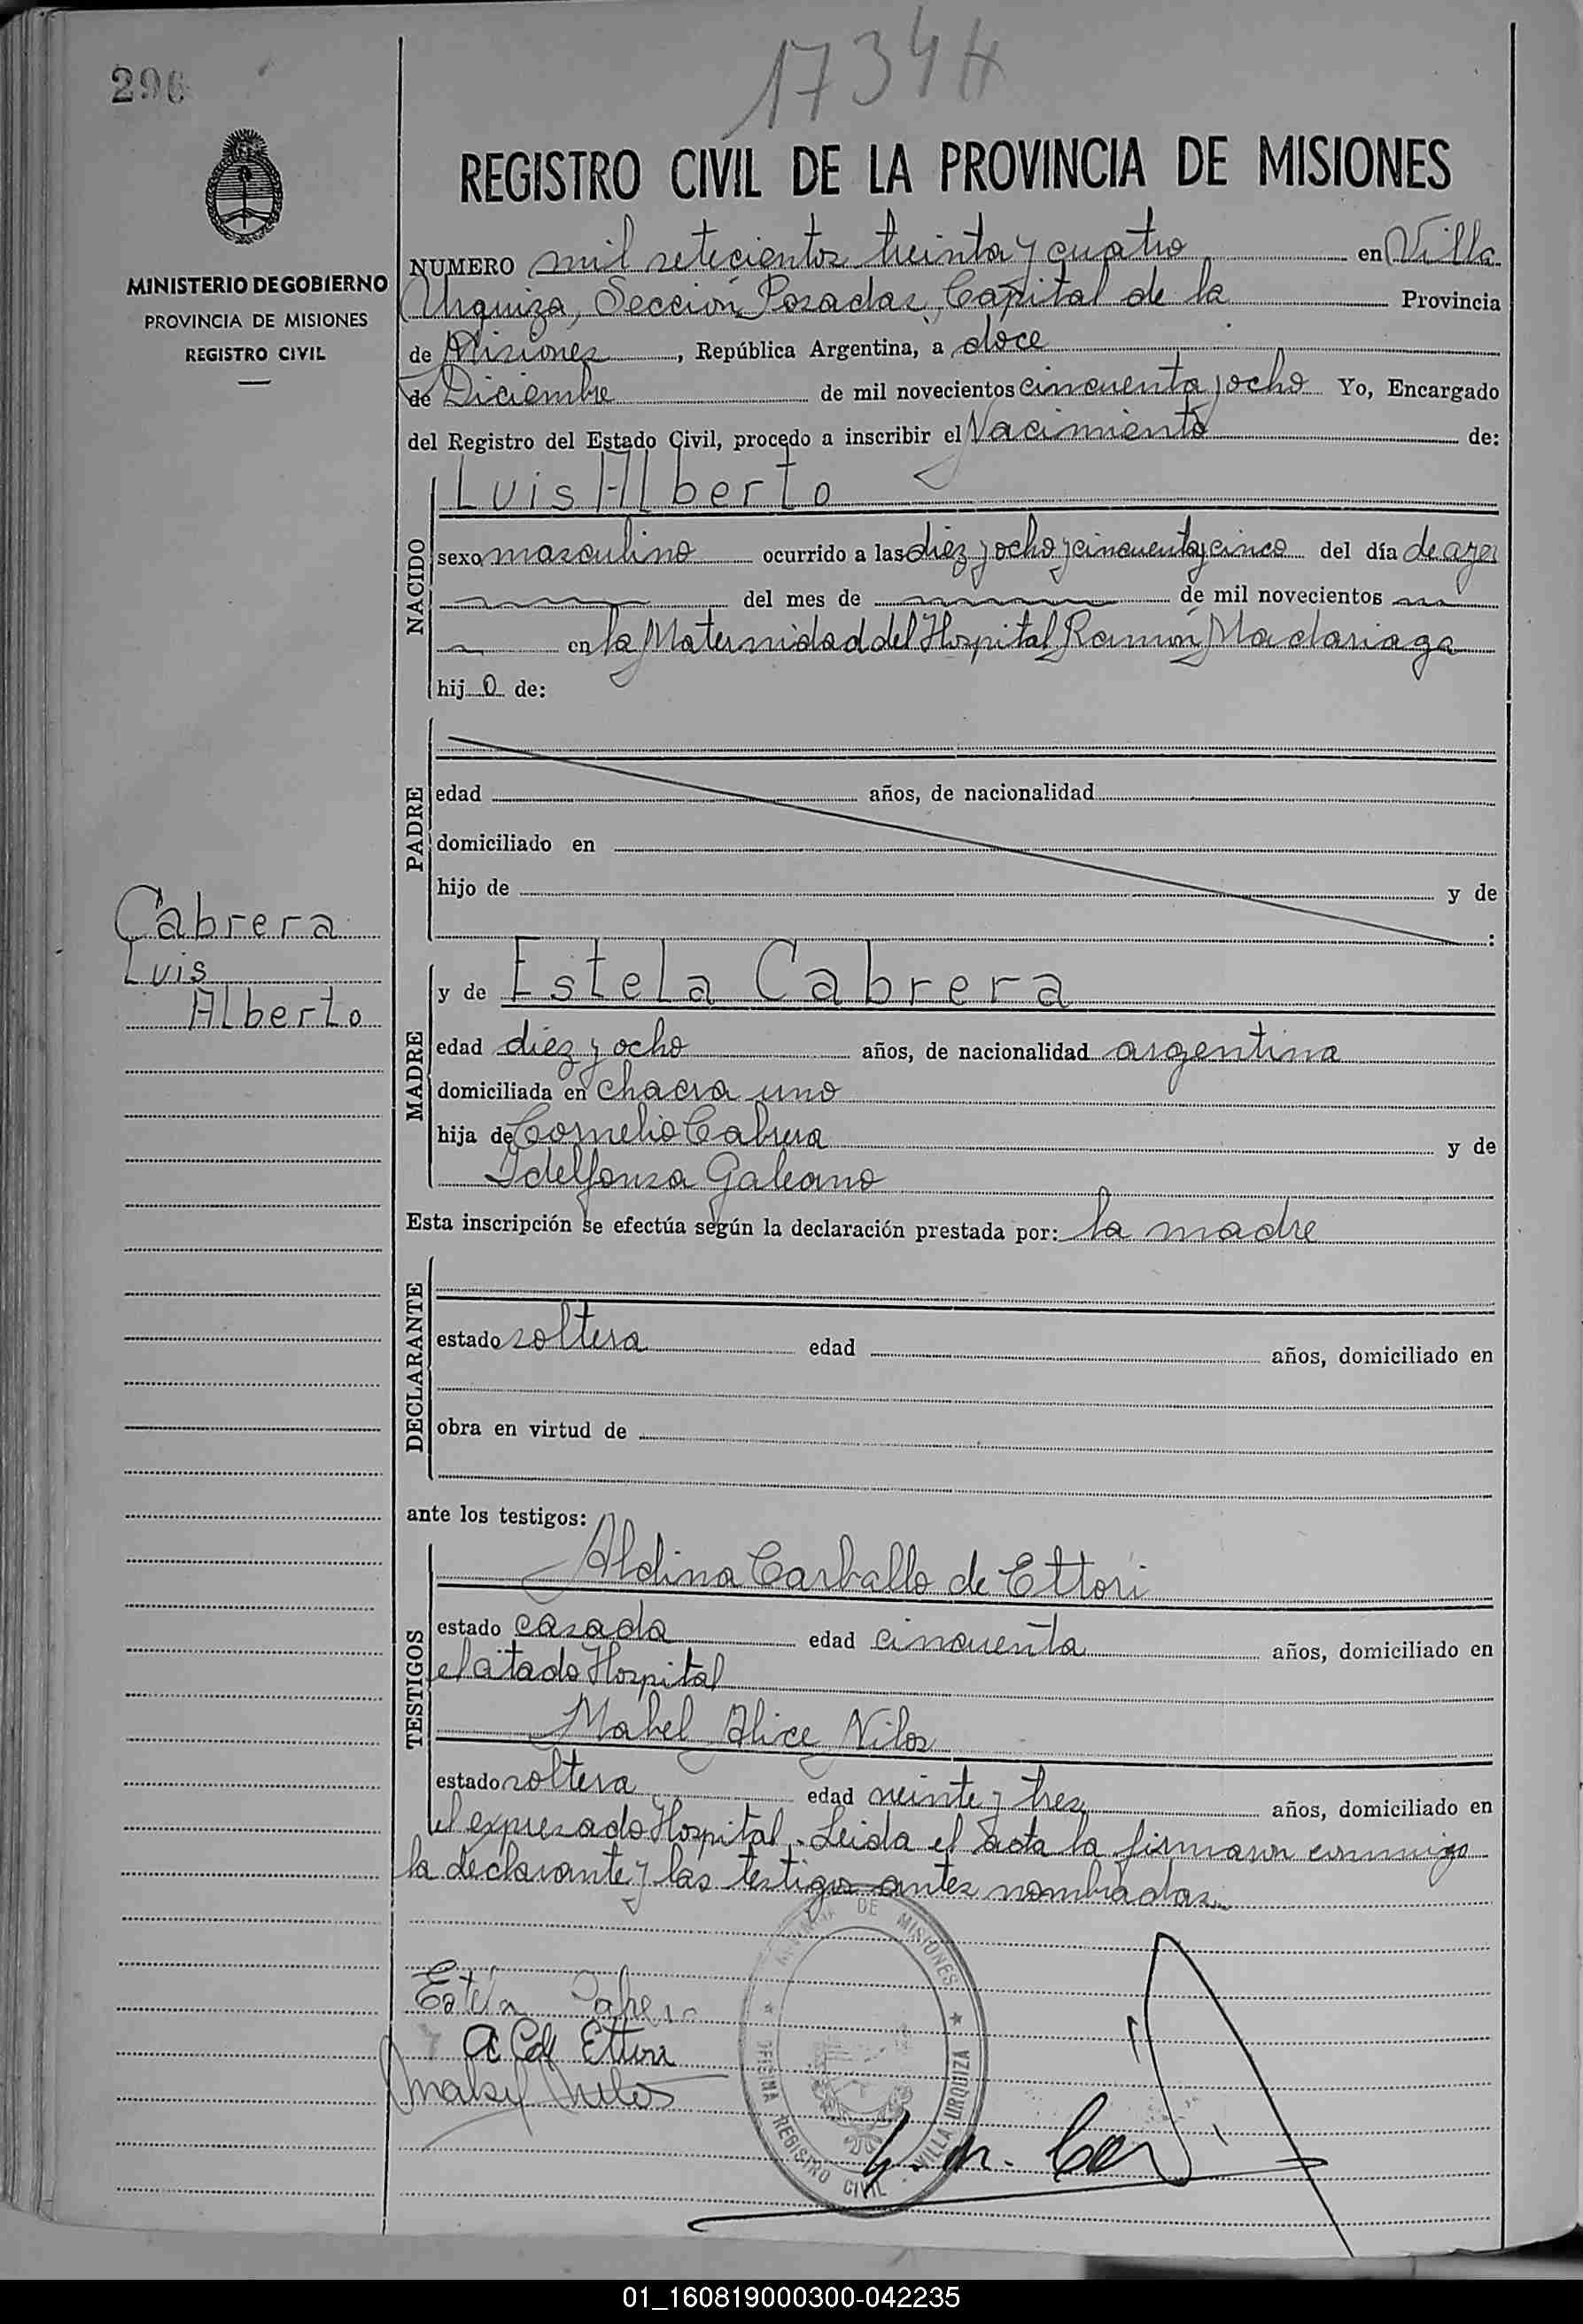 296
1734 H
MINISTERIO DE GOBIERNO
PROVINCIA DE MISIONES
REGISTRO CIVIL
REGISTRO CIVIL DE LA PROVINCIA DE MISIONES
NUMERO mil setecientos treinta y cuatro en Villa
Urquiza, Sección Posadas, Capital de la Provincia
de Misiones, República Argentina, a doce
de Diciembre de mil novecientos cincuenta y ocho Yo, Encargado
del Registro del Estado Civil, procedo a inscribir el Nacimiento de:
NACIDO
Luis Alberto
sexo masculino ocurrido a las diez y ocho y cincuenta y cinco del día de ayer
del mes de de mil novecientos
en la Maternidad del Hospital Ramón Madariaga
hijo de:
PADRE
edad años, de nacionalidad
domiciliado en
hijo de y de
:
Cabrera
Luis
Alberto
MADRE
y de Estela Cabrera
edad diez y ocho años, de nacionalidad argentina
domiciliada en chacra uno
hija de Cornelio Cabrera y de
Idelfonsa Galeano
Esta inscripción se efectúa según la declaración prestada por: la madre
DECLARANTE
estado soltera edad años, domiciliado en
obra en virtud de
ante los testigos:
TESTIGOS
Aldina Carballo de Ettori
estado casada edad cincuenta años, domiciliado en
el citado Hospital
Mabel Alice Nilos
estado soltera edad veinte y tres años, domiciliado en
el expresado Hospital. Leida el acta la firmaron conmigo
la declarante y las testigos antes nombradas.
Estela Cabrera
A C de Ettori
Mabel Nilos
DE MISIONES
OFICINA REGISTRO CIVIL - VILLA URQUIZA
01_160819000300-042235